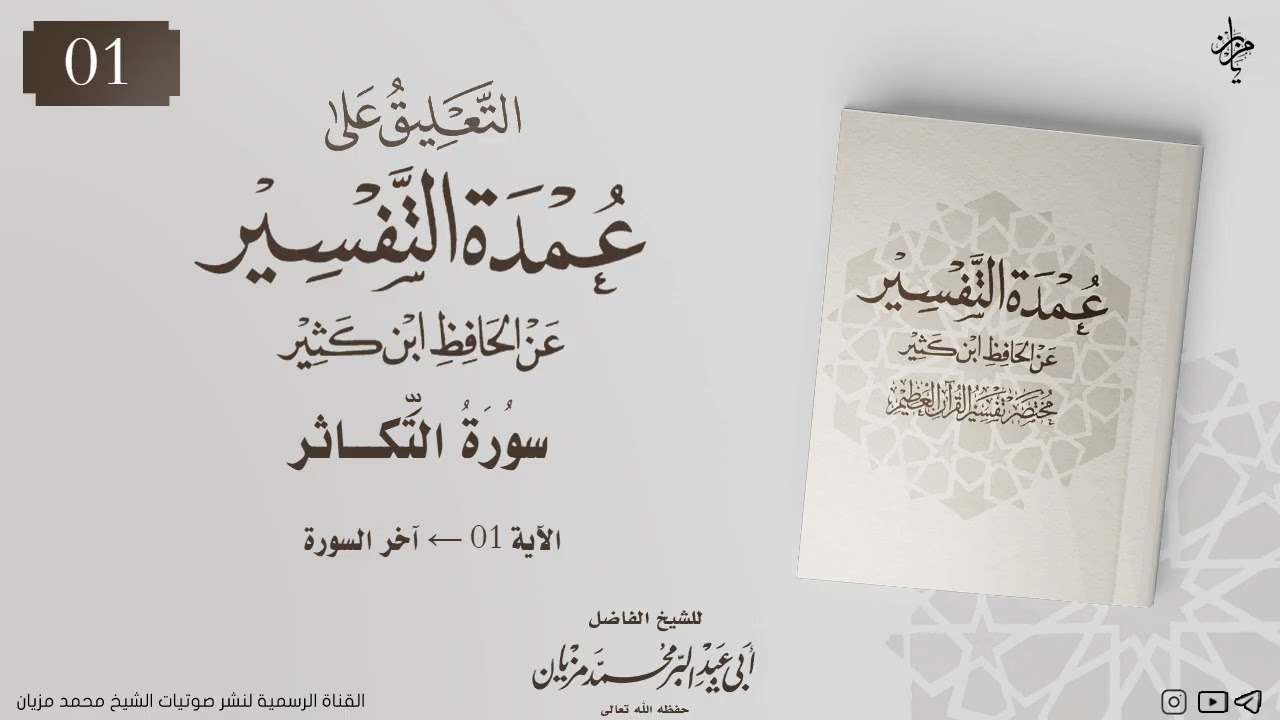 01
التَّعْلِيقُ عَلَى
عُمْدَةُ التَّفْسِيْر
عَنْ الحَافِظِ ابْن كَثِيْر
سُورَةُ التَّكـاثر
الآية 01 ← آخر السورة
للشيخ الفاضل
أبي عبد البر محمد مزيان
حفظه الله تعالى
القناة الرسمية لنشر صوتيات الشيخ محمد مزيان
مزيان
عُمْدَةُ التَّفْسِيْر
عَنْ الحَافِظِ ابْن كَثِيْر
مُخْتَصَرُ تَفْسِيْرُ القُرآن العَظِيْم